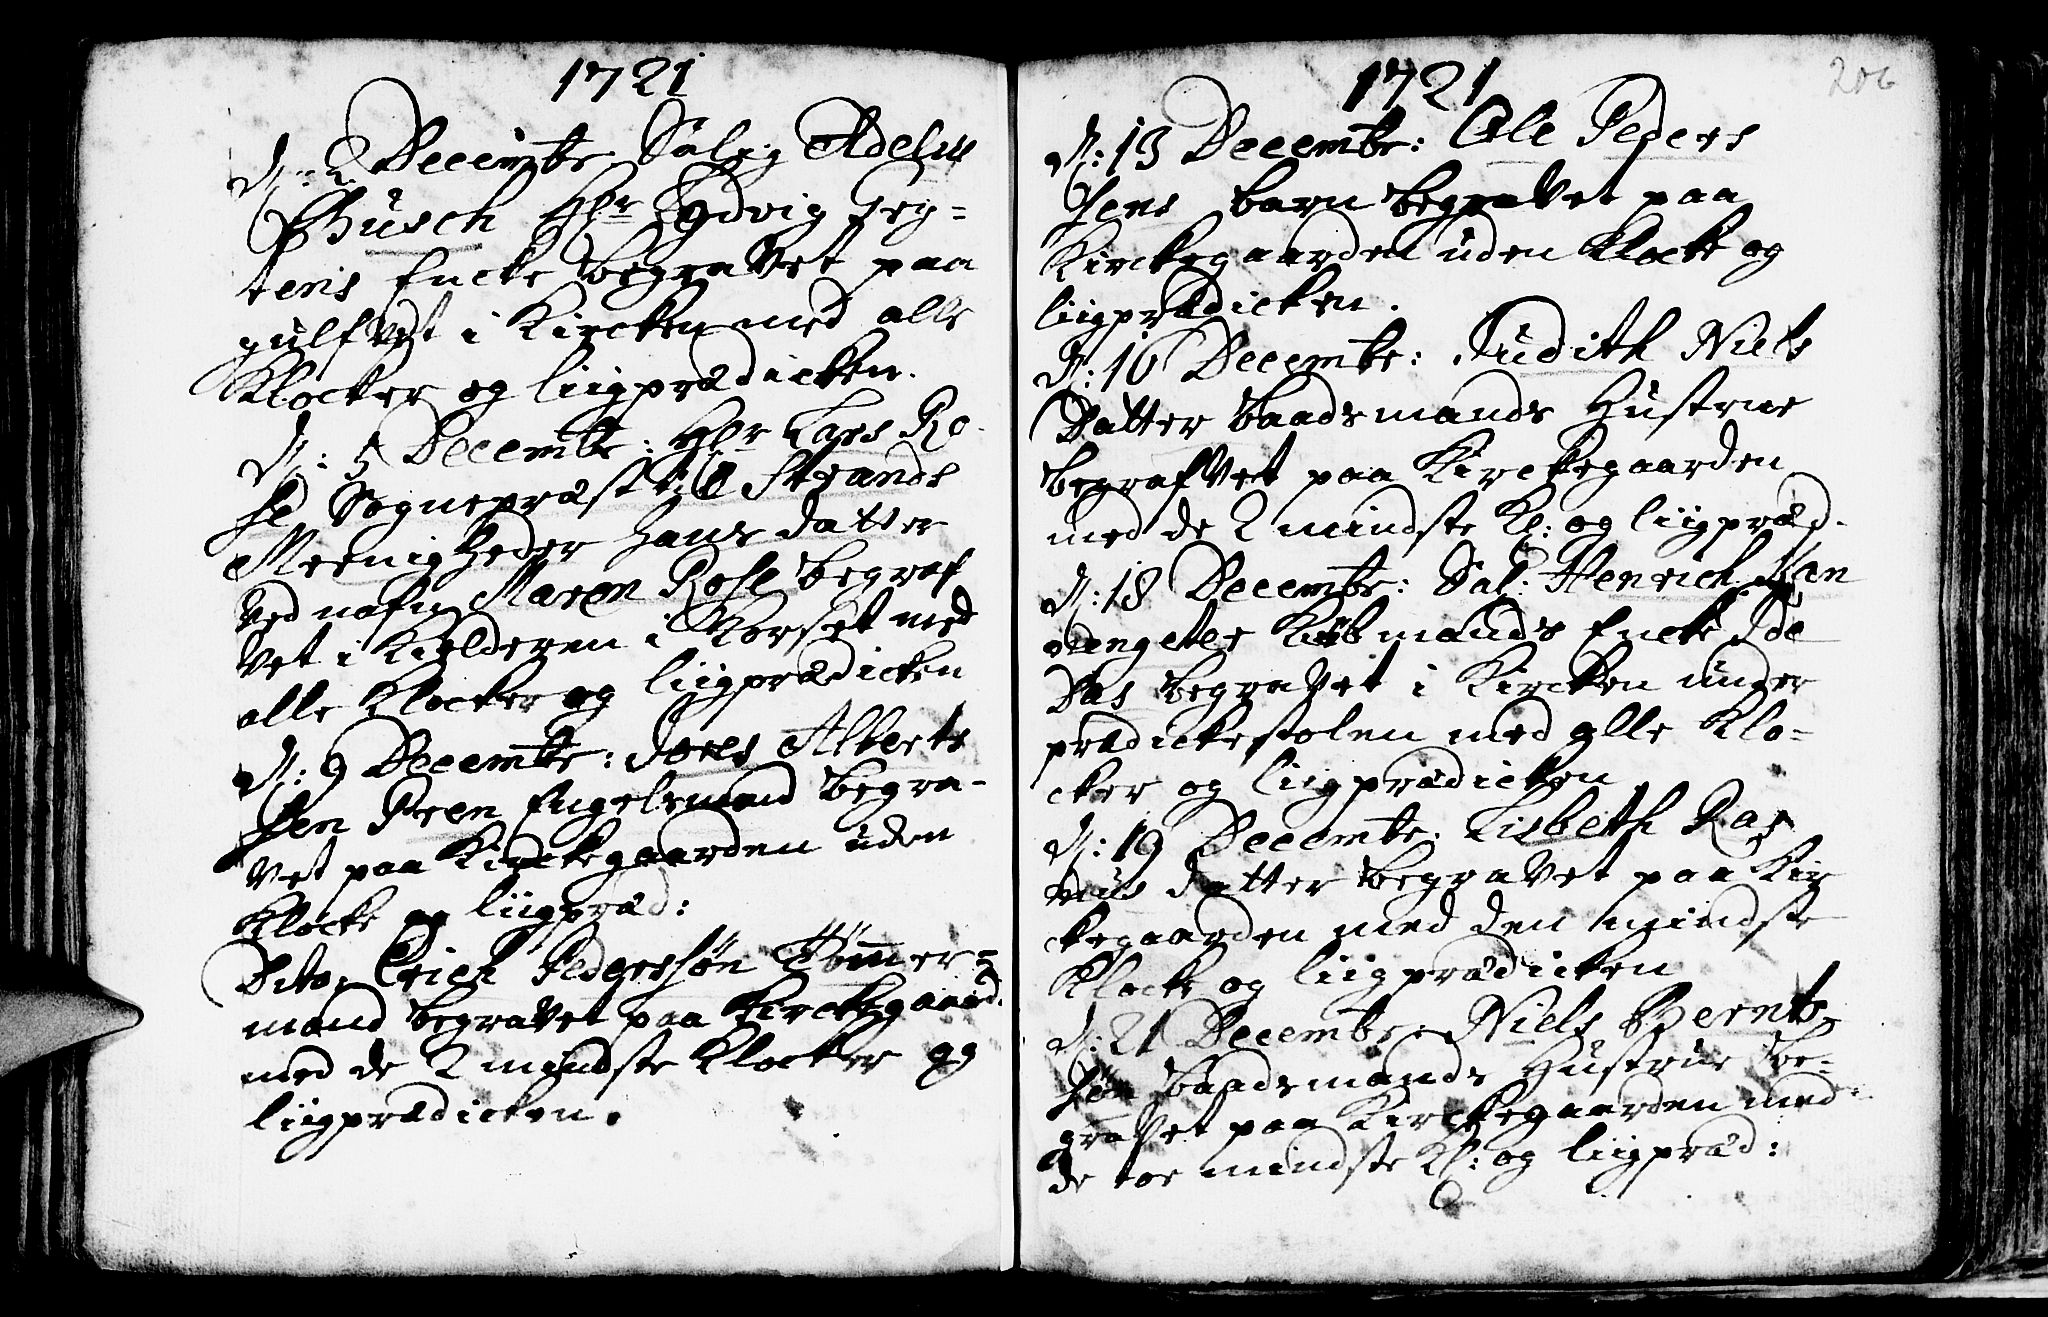 1721
D: 2 Decembr: Salig Adelus
Büsch Hr Lydvig Jeg=
tens Encke begravet paa
gulfvet i Kircken med alle
Klocker og liigprædicken.
D: 5 Decembr: Hr Lars Ro-
se Sognepræst til Strands
Meenigheder hans datter
ved nafn Maren Rose begraf
vet i Kielderen i Korset med
alle Klocker og liigprædicken
D: 9 Decembr: Alberts
sen Pren Engelsmand begra-
vet paa Kirckegaarden uden
Klocke og liigpræd:
Dito, Erich Pederssøn Tømmer=
mand begravet paa Kirckegaard.
med de 2 mindste Klocker og
liigprædicken.
1721
206
D: 13 Decembr: Ole Peders
sens barn begravet paa
Kirckegaarden uden Klocke og
liigprædicken.
D: 16 Decembr: Judith Niels
Datter baadsmands Hustrue
begrafvet paa Kirckegaarden
med de 2 mindste Kl: og liigpræd.
D: 18 Decembr: Sal: Henrich Van
Kiøbmands Encke Ide
Das begravet i Kircken under
prædickestolen med alle Klo-
cker og liigprædicken
D: 19 Decembr: Lisbeth Ras
mus datter begravet paa Kir
kegaarden med den mindste
Klocke og liigprædicken
D: 21 Decembr: Niels Bernts
søn baadsmands Hustrue be-
gravet paa Kirckegaarden med
de toe mindste Kl: og liigpræd: